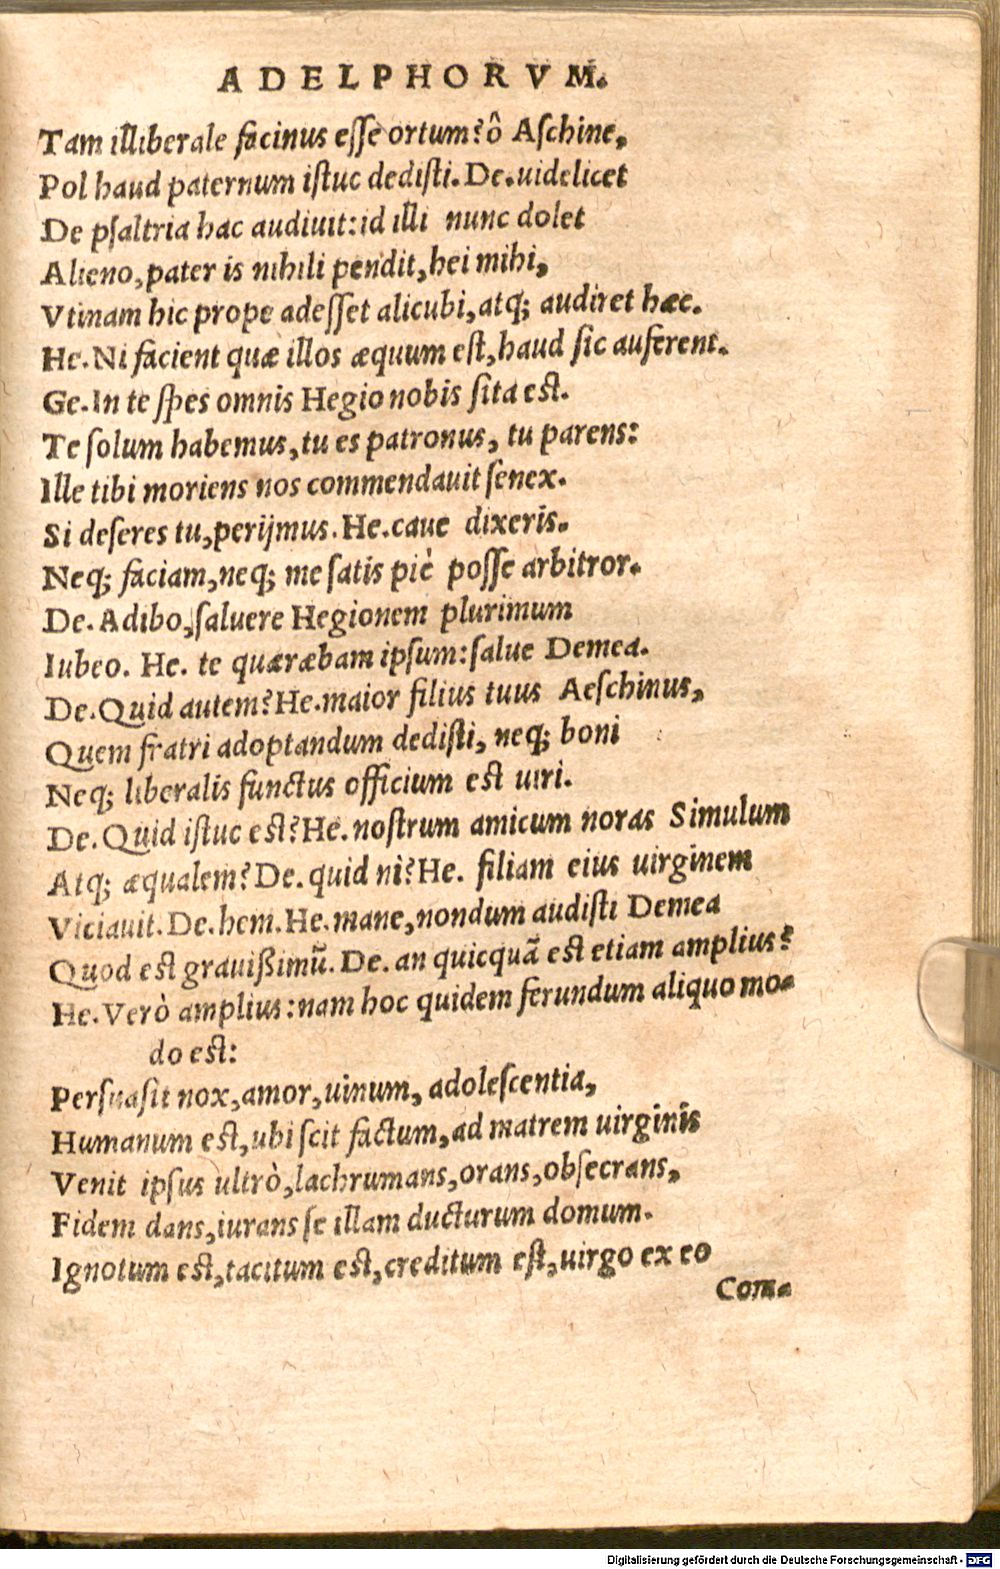 ADELPHORVM.
Tam illiberale facinus esse ortum? ô Aschine,
Pol haud paternum istuc dedisti. De. uidelicet
De psaltria hac audiuit: id illi nunc dolet
Alieno, pater is nihili pendit, hei mihi,
Vtinam hic prope adesset alicubi, atq; audiret hæc.
He. Ni facient quæ illos æquum est, haud sic auferent.
Ge. In te spes omnis Hegio nobis sita est.
Te solum habemus, tu es patronus, tu parens:
Ille tibi moriens nos commendauit senex.
Si deseres tu, perijmus. He. caue dixeris.
Neq; faciam, neq; me satis piè posse arbitror.
De. Adibo, saluere Hegionem plurimum
Iubeo. He. te quæræbam ipsum: salue Demea.
De. Quid autem? He. maior filius tuus Aeschinus,
Quem fratri adoptandum dedisti, neq; boni
Neq; liberalis functus officium est uiri.
De. Quid istuc est? He. nostrum amicum noras Simulum
Atq; æqualem? De. quid ni? He. filiam eius uirginem
Viciauit. De. hem. He. mane, nondum audisti Demea
Quod est grauißimũ. De. an quicquã est etiam amplius?
He. Verò amplius: nam hoc quidem ferundum aliquo mo-
do est:
Persuasit nox, amor, uinum, adolescentia,
Humanum est, ubi scit factum, ad matrem uirginis
Venit ipsus ultrò, lachrumans, orans, obsecrans,
Fidem dans, iurans se illam ducturum domum.
Ignotum est, tacitum est, creditum est, uirgo ex eo
Com-
Digitalisierung gefördert durch die Deutsche Forschungsgemeinschaft - DFG